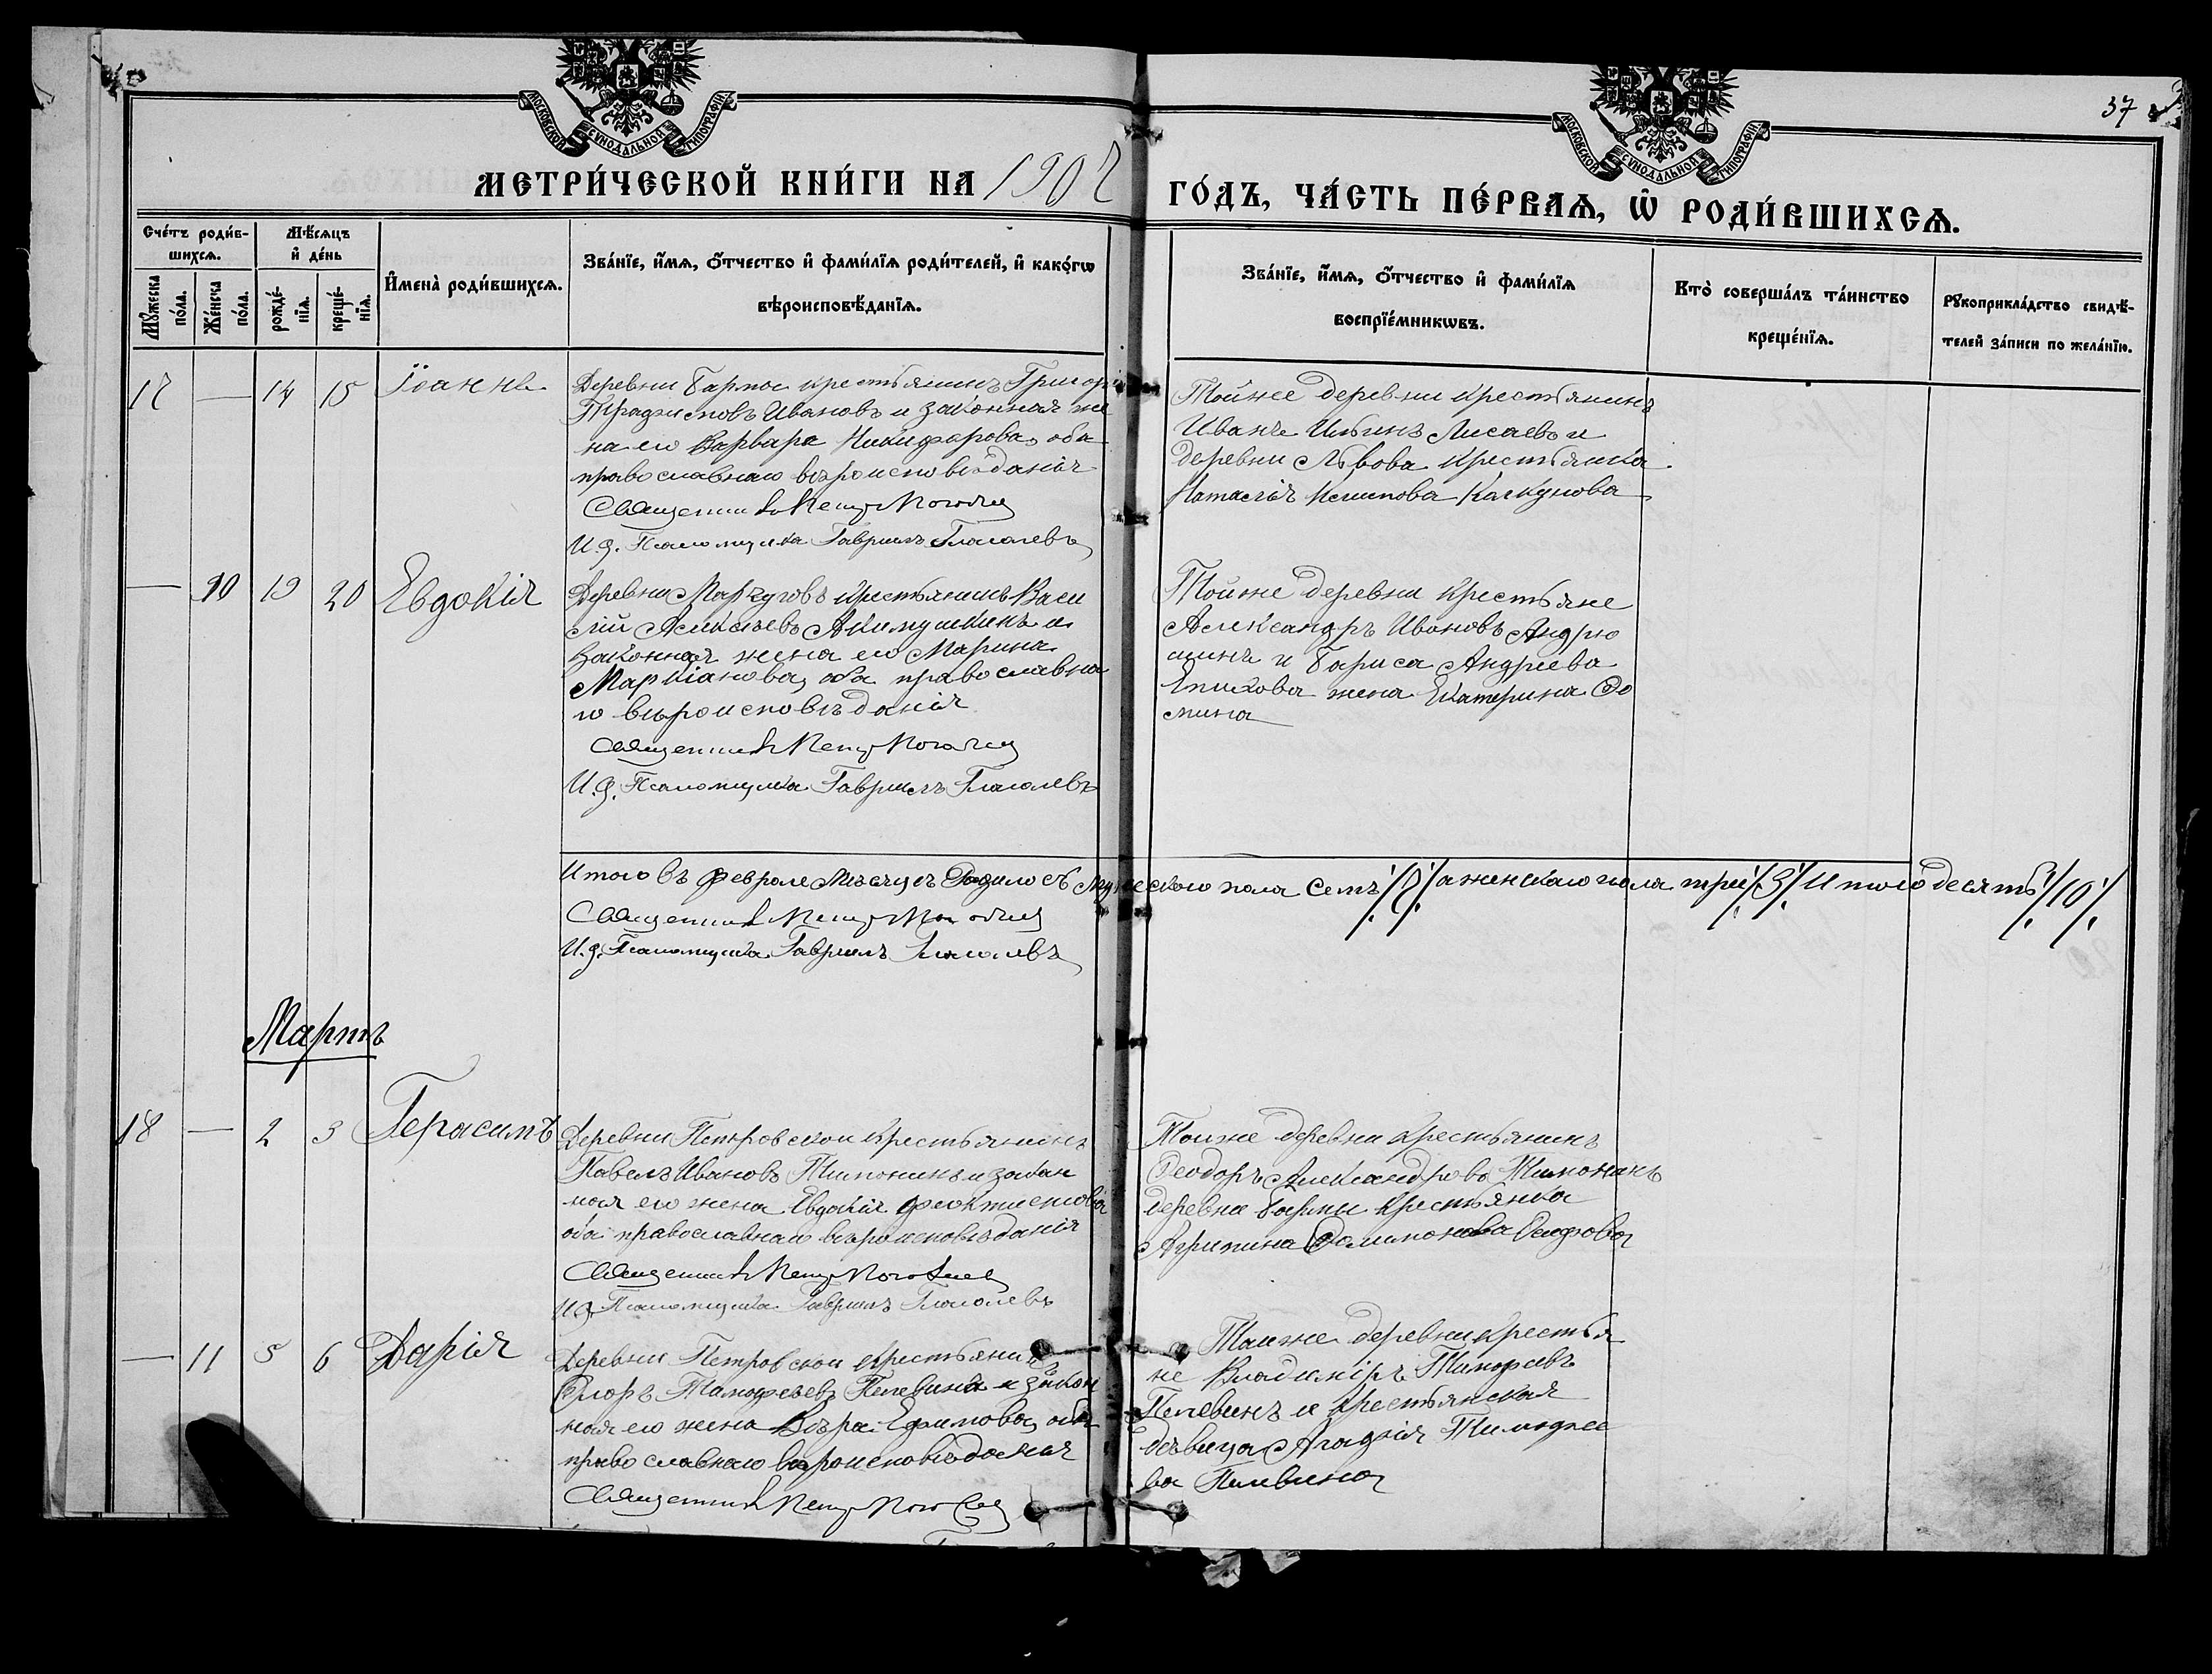 37
МОСКОВСКОЙ СѴНОДАЛЬНОЙ ТИПОГРАФІИ.
МОСКОВСКОЙ СѴНОДАЛЬНОЙ ТИПОГРАФІИ.
МЕТРИ́ЧЕСКОЙ КНИ́ГИ НА 1907 ГО́ДЪ, ЧА́СТЬ ПЕ́РВАѦ, Ѡ҆ РОДИ́ВШИХСѦ.
Сче́тъ роди́в-
шихсѧ.
Мꙋ́жеска по́ла.
Же́нска по́ла.
Мѣ́сѧцъ
и҆ де́нь
рожде́-нїѧ.
креще́-нїѧ.
И҆мена̀ роди́вшихсѧ.
Зва́нїе, и҆́мѧ, ѻ҆́тчество и҆ фами́лїѧ роди́телей, и҆ како́гѡ
вѣроисповѣ́данїѧ.
Зва́нїе, и҆́мѧ, ѻ҆́тчество и҆ фами́лїѧ
воспрїе́мникѡвъ.
Кто̀ соверша́лъ та́инство
креще́нїѧ.
Рꙋкоприкла́дство свидѣ́-
телей за́писи по жела́нїю.
17 — 14 15 Іоаннъ
Деревни крестьянинъ Григорій
Ивановъ и законная же
на его Варвара Никифорова, оба
православнаго вѣроисповѣданія
Священникъ Петръ
И.д. Псаломщика Гавриилъ Глаголевъ
Тойже деревни крестьянинъ
Иванъ Ильинъ Лисаевъ и
деревни Львова крестьянка
Наталія
— 10 19 20 Евдокія
Деревни крестьянинъ Васи
лій Алексѣевъ Акимушкинъ и
законная жена его Марина
Маркіанова, оба православна
го вѣроисповѣданія
Священникъ Петръ
И.д. Псаломщика Гавриилъ Глаголевъ
Тойже деревни крестьяне
Александръ Ивановъ Андрю
шинъ и Бориса Андреева
Епихова жена Екатерина Фо
мина
Итого въ Февралѣ мѣсяцѣ родилось мужескаго пола семь /7/ а женскаго пола три /3/ Итого десять /10/
Священникъ Петръ
И.д. Псаломщика Гавриилъ Глаголевъ
Мартъ
18 — 2 3 Герасимъ
Деревни Петровской крестьянинъ
Павелъ Ивановъ Тимонинъ и закон
ная его жена Евдокія Феоктистова
оба православнаго вѣроисповѣданія
Священникъ Петръ
И.д. Псаломщика Гавриилъ Глаголевъ
Тойже деревни крестьянинъ
Ѳеодоръ Александровъ Тимонинъ
деревни крестьянка
Агрипина
— 11 5 6 Дарія
Деревни Петровской крестьянинъ
Флоръ Тимофеевъ Пелевинъ и закон
ная его жена Вѣра Ефимова, оба
православнаго вѣроисповѣданія
Священникъ Петръ
Тойже деревни крестья
не Владиміръ Тимофеевъ
Пелевинъ и крестьянская
дѣвица Агафія Тимофее
ва Пелевина